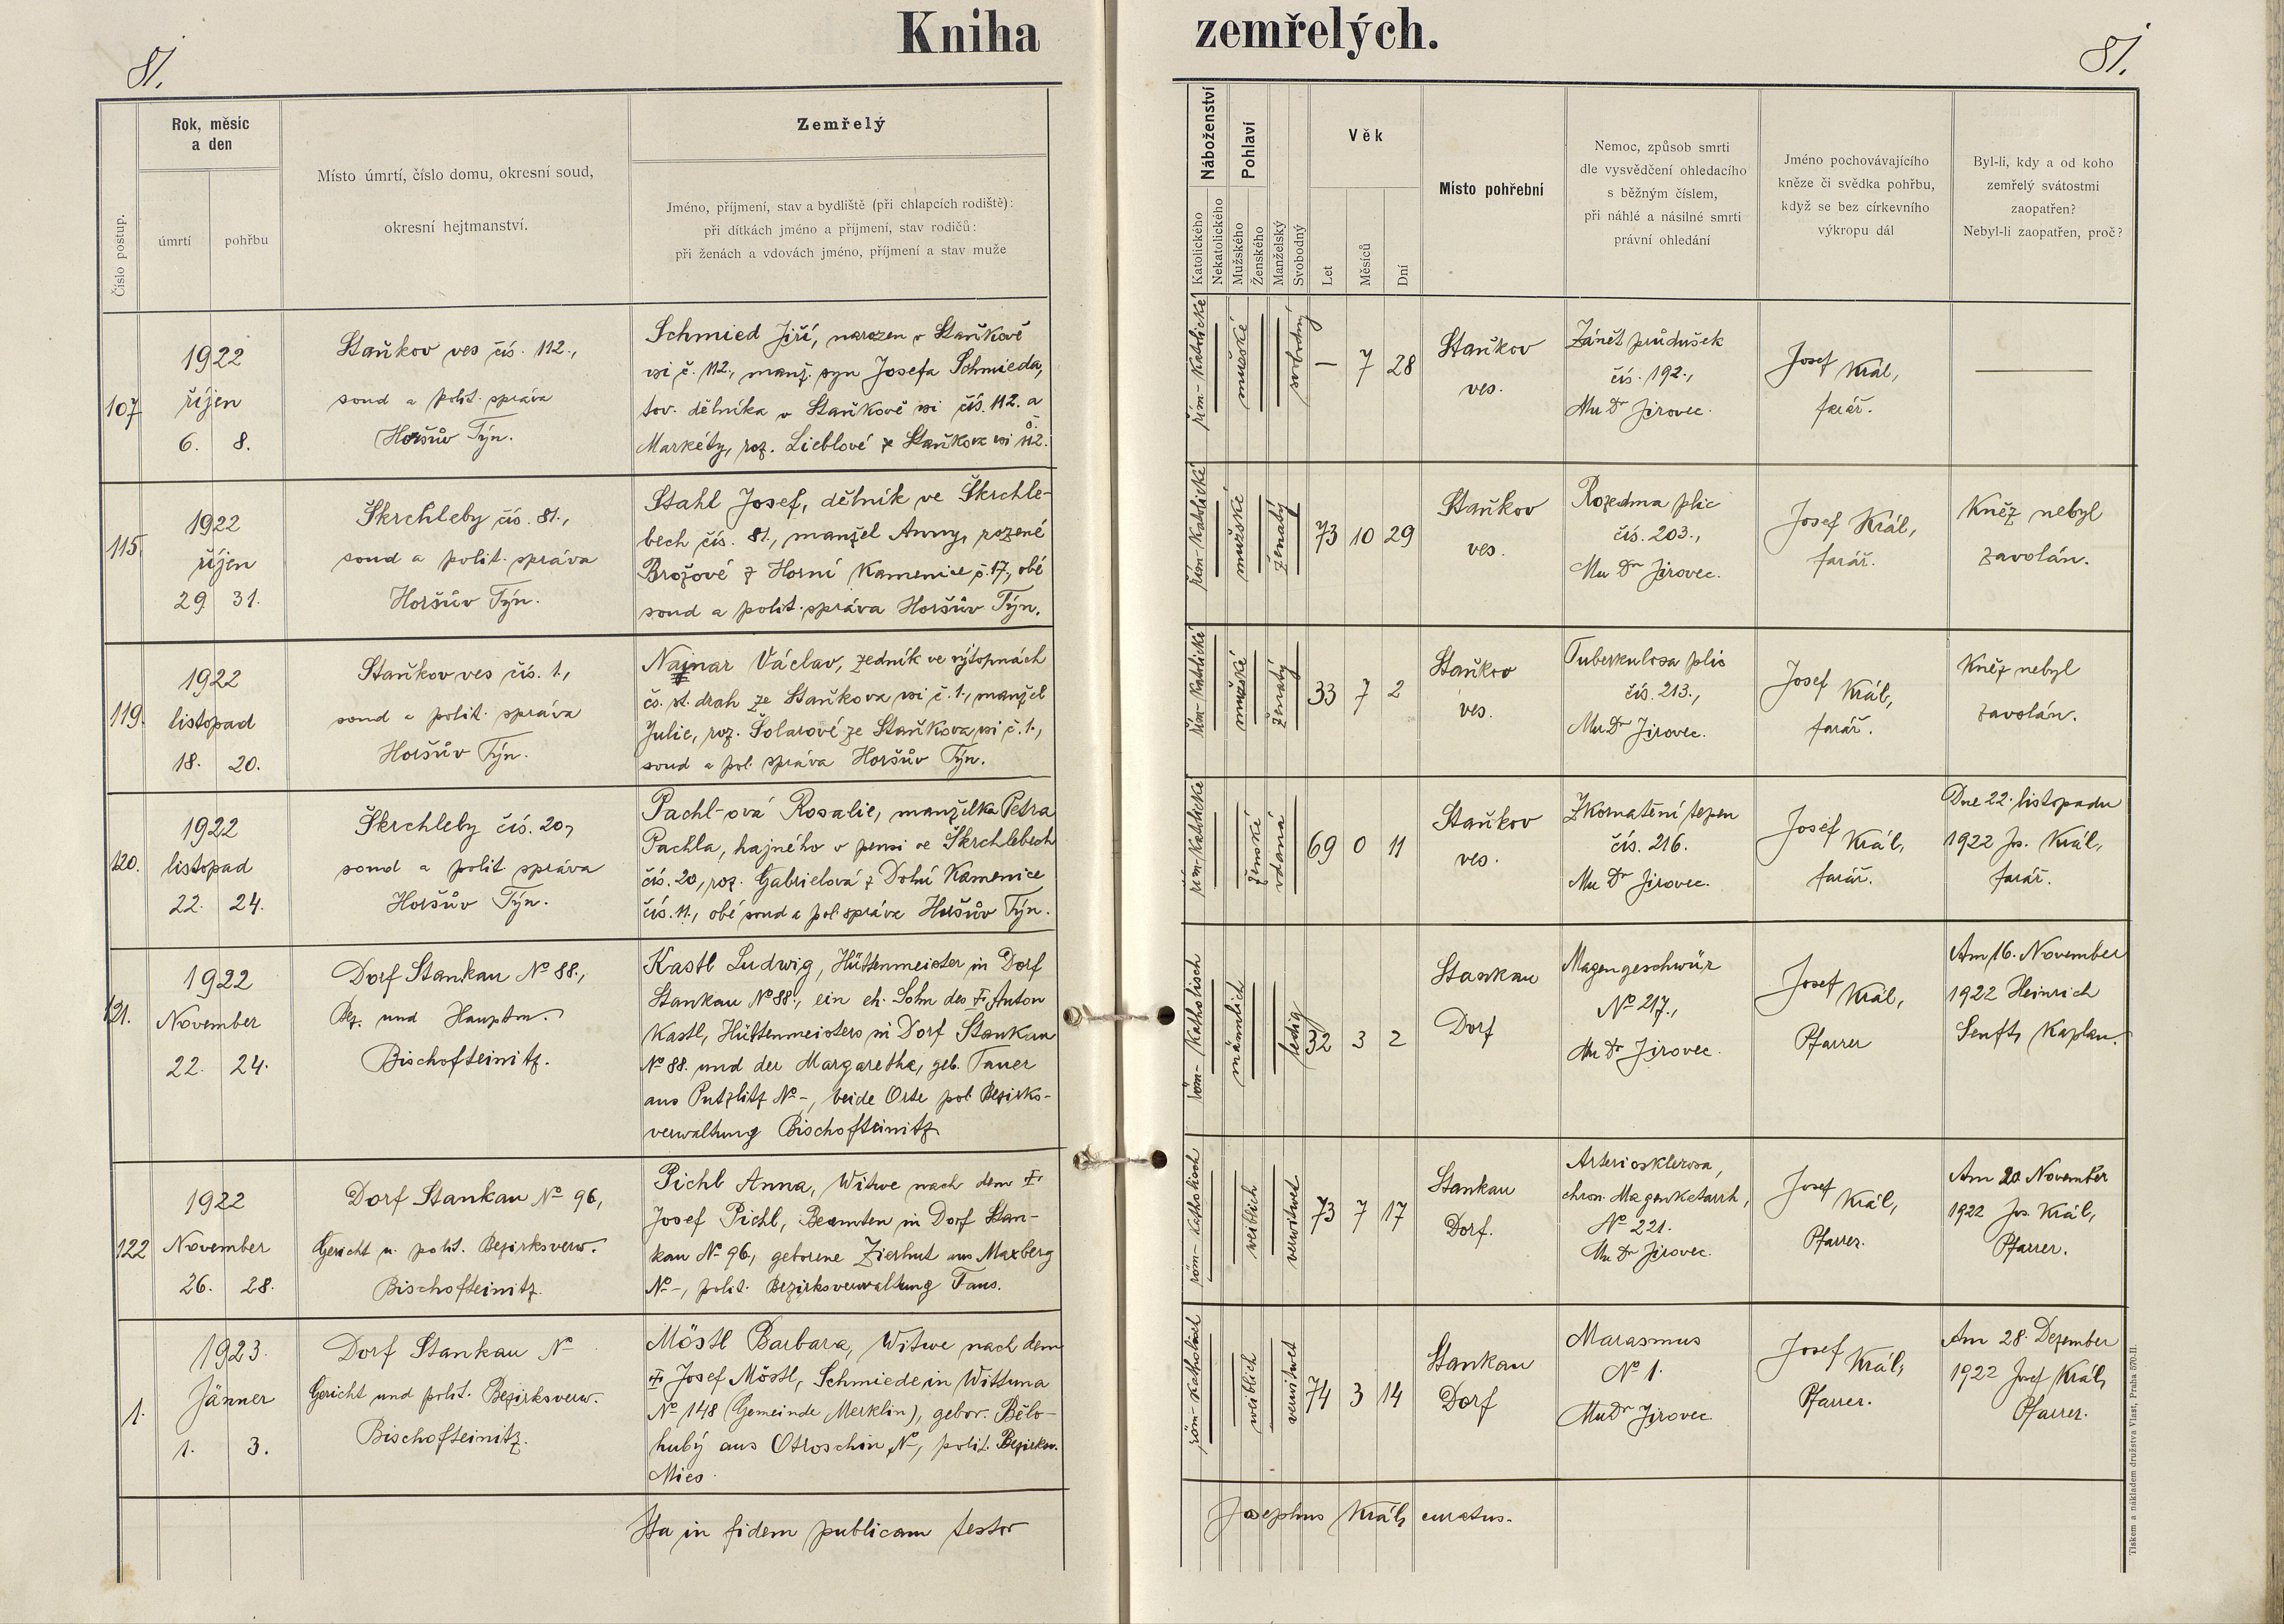 Kniha zemřelých.
81.
81.
Číslo postup.
Rok, měsíc
a den
úmrtí
pohřbu
Místo úmrtí, číslo domu, okresní soud,
okresní hejtmanství.
Zemřelý
Jméno, příjmení, stav a bydliště (při chlapcích rodiště):
při dítkách jméno a příjmení, stav rodičů:
při ženách a vdovách jméno, příjmení a stav muže
Náboženství
Katolického
Nekatolického
Pohlaví
Mužského
Ženského
Manželský
Svobodný
Věk
Let
Měsíců
Dní
Místo pohřební
Nemoc, způsob smrti
dle vysvědčení ohledacího
s běžným číslem,
při náhlé a násilné smrti
právní ohledání
Jméno pochovávajícího
kněze či svědka pohřbu,
když se bez církevního
výkropu dál
Byl-li, kdy a od koho
zemřelý svátostmi
zaopatřen?
Nebyl-li zaopatřen, proč?
107
1922
říjen
6. 8.
Staňkov ves čís. 112.,
soud a polit. správa
Horšův Týn.
Schmied Jiří, narozen v Staňkově
vsi č. 112., manž. syn Josefa Schmieda,
tov. dělníka v Staňkově vsi čís. 112. a
Markéty, roz. Lieblové ze Staňkova vsi č. 112.
řím-katolické
mužské
svobodný
— 7 28
Staňkov
ves.
Zánět průdušek
čís. 192.,
Mu Dr Jirovec.
Josef Král,
farář.
—
115.
1922
říjen
29. 31.
Škrchleby čís. 81.,
soud a polit. správa
Horšův Týn.
Stahl Josef, dělník ve Škrchle-
bech čís. 81., manžel Anny, rozené
Brožové z Horní Kamenice č. 17., obé
soud a polit. správa Horšův Týn.
řím-katolické
mužské
ženatý
73 10 29
Staňkov
ves.
Rozedma plic
čís. 203.,
Mu Dr Jirovec.
Josef Král,
farář.
Kněz nebyl
zavolán.
119.
1922
listopad
18. 20.
Staňkov ves čís. 1.,
soud a polit. správa
Horšův Týn.
Najnar Václav, zedník ve výtopnách
čs. st. drah ze Staňkova vsi č. 1., manžel
Julie, roz. Šolarové ze Staňkova vsi č. 1.,
soud a pol. správa Horšův Týn.
řím-katolické
mužské
ženatý
33 7 2
Staňkov
ves.
Tuberkulosa plic
čís. 213.,
Mu Dr Jirovec.
Josef Král,
farář.
Kněz nebyl
zavolán.
120.
1922
listopad
22. 24.
Škrchleby čís. 20,
soud a polit správa
Horšův Týn.
Pachl-ová Rosalie, manželka Petra
Pachla, hajného v pensi ve Škrchlebech
čís. 20, roz. Gabrielová z Dolní Kamenice
čís. 11., obé soud a pol. správa Horšův Týn.
řím-katolické
ženské
vdaná
69 0 11
Staňkov
ves.
Zkornatění tepen
čís. 216.
Mu Dr Jirovec.
Josef Král,
farář.
Dne 22. listopadu
1922 Jos. Král,
farář.
121.
1922
November
22. 24.
Dorf Stankau No 88.,
Bez. und Hauptm.
Bischofteinitz.
Kastl Ludwig, Hüttenmeister in Dorf
Stankau No 88., ein eh. Sohn des Anton
Kastl, Hüttenmeisters in Dorf Stankau
No 88. und der Margarethe, geb. Tauer
aus Putzlitz No -, beide Orte pol. Bezirks-
verwaltung Bischofteinitz
röm-katholisch
männlich
ledig
32 3 2
Stankau
Dorf
Magengeschwür
No 217.,
Mu Dr Jirovec.
Josef Král,
Pfarrer
Am 16. November
1922 Heinrich
Senft, Kaplan.
122
1922
November
26. 28.
Dorf Stankau No 96,
Gericht u. polit. Bezirksverw.
Bischofteinitz.
Pichl Anna, Witwe nach dem
Josef Pichl, Beamten in Dorf Stan-
kau No 96, geborene Zierhut aus Maxberg
No -, polit. Bezirksverwaltung Taus.
röm-katholisch
weiblich
verwitwet
73 7 17
Stankau
Dorf.
Arteriosklerosa,
chron. Magenkatarrh,
No 221.
Mu Dr Jirovec.
Josef Král,
Pfarrer.
Am 20 November
1922 Jos. Král,
Pfarrer.
1.
1923.
Jänner
1. 3.
Dorf Stankau No
Gericht und polit. Bezirksverw.
Bischofteinitz.
Möstl Barbara, Witwe nach dem
Josef Möstl, Schmiede, in Wittuna
No 148 (Gemeinde Merklin), gebor. Bělo-
hubý aus Otroschin No, polit. Bezirksv.
Mies.
röm-katholisch
weiblich
verwitwet
74 3 14
Stankau
Dorf
Marasmus
No 1.
Mu Dr Jirovec
Josef Král,
Pfarrer.
Am 28. Dezember
1922 Josef Král,
Pfarrer.
Ita in fidem publicam testor
Josephus Král, curatus.
Tiskem a nákladem družstva Vlast, Praha 570-II.